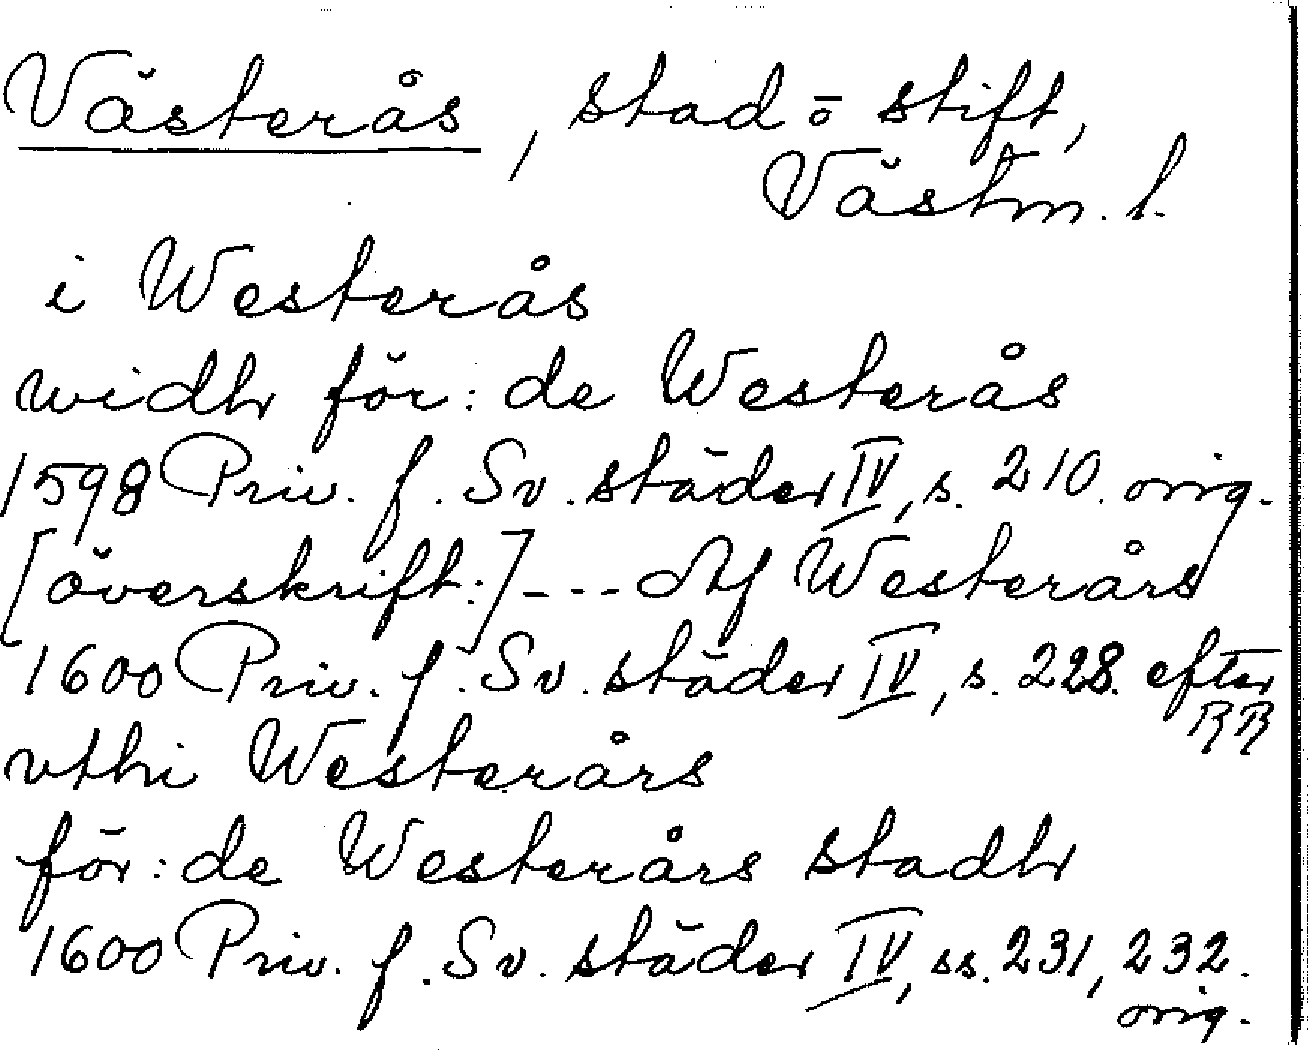 Västerås, stad o stift,
Västm. l.
i Westerås
widh för:de Westerås
1598 Priv. f. Sv. städer IV, s. 210. orig.
[överskrift:]--- Af Westerårs
1600 Priv. f. Sv. städer IV, s. 228. efter
RR
vthi Westerårs
för:de Westerårs stadh
1600 Priv. f. Sv. städer IV, ss. 231, 232.
orig.